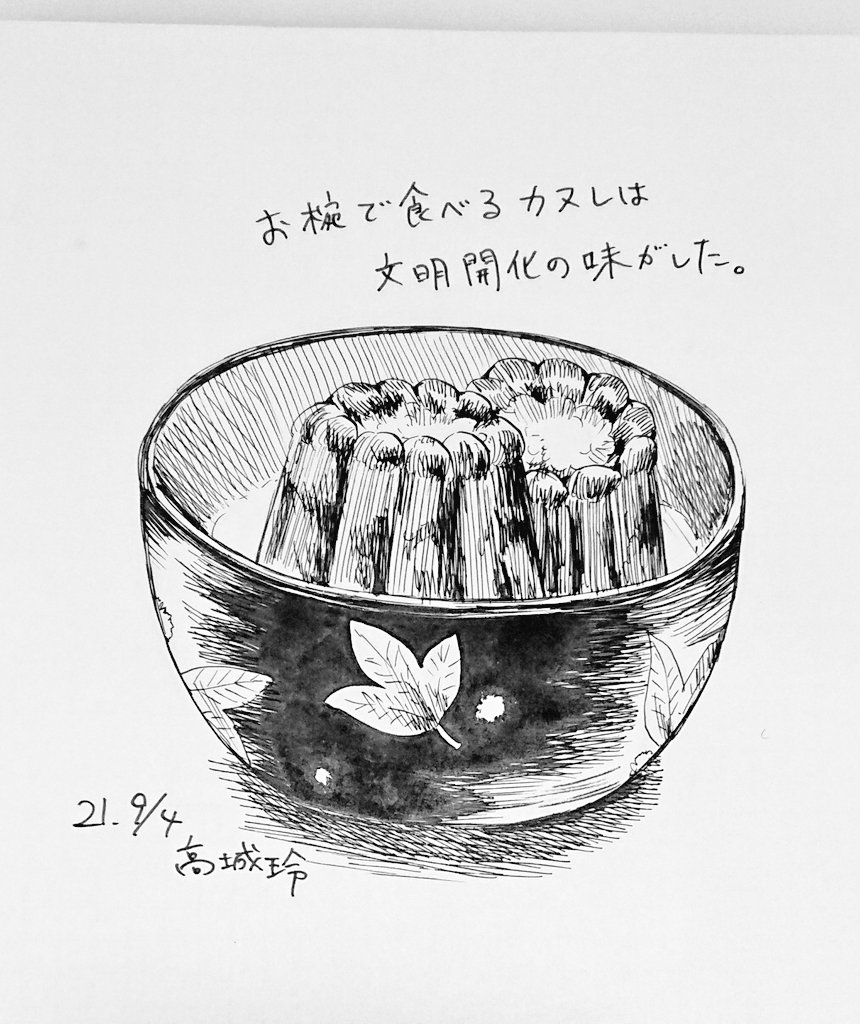 お椀で食べるカヌレは
文明開化の味がした。
21. 9/4
高城玲